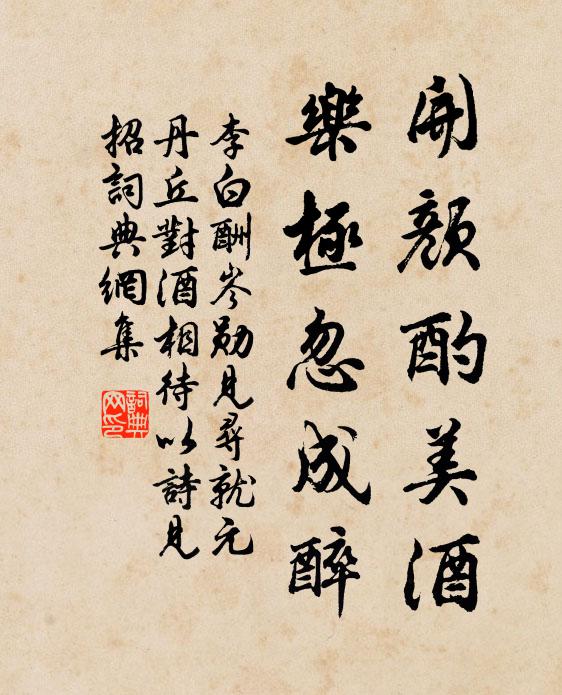 開顏酌美酒
樂極忽成醉
李白酬岑勛見尋就元
丹丘對酒相待以詩見
招詞典網集
詞典
网印